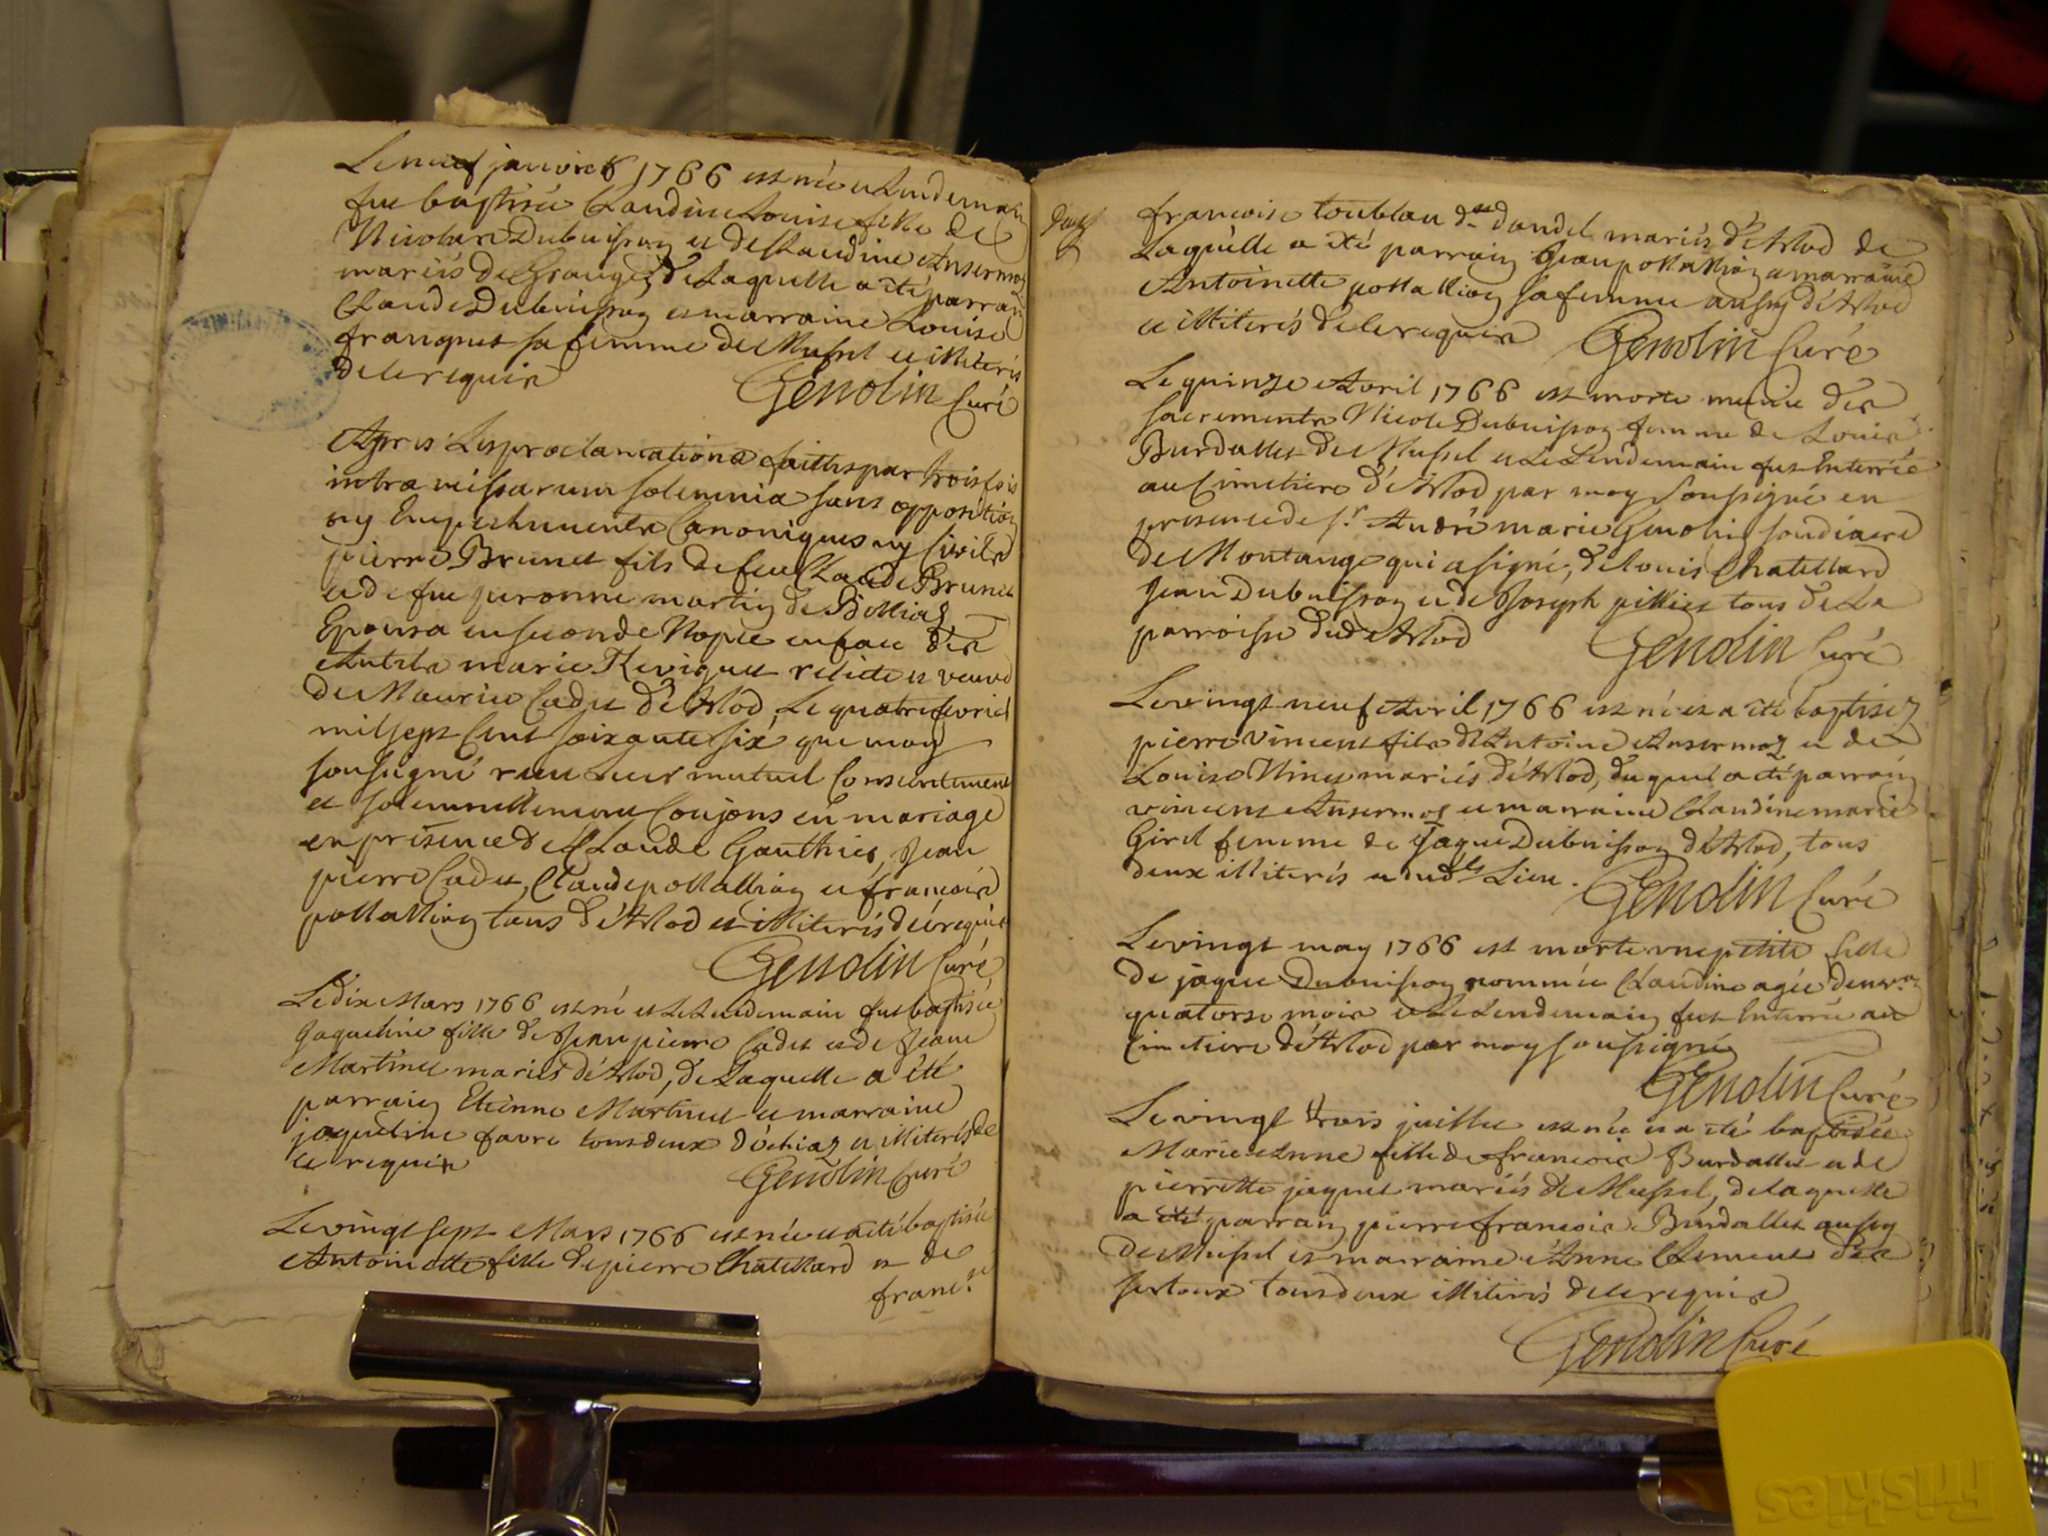 Le neuf janvier 1766 est née et Lendemain
fut baptisée Claudine Louise fille de
Nicolas Dubuisson et de Claudine Ansermoz
mariés de Granges, de Laquelle a été parrain
Claude Dubuisson et marraine Louise
franquet sa femme de Mussel et illiterés
de ce requis
Genolin Curé
Apres Les proclamations faittes par trois fois
intra missarum solemnia sans opposition
ny Empechements Canoniques ny Civils
pierre Brunet fils de feu Claude Brunet
et de fue peronne martin de Billiaz
Epousa en seconde Nopce en face des
Autels marie Revignet relicte et veuve
de Maurice Cadet d'Arlod, Le quatre fevrier
mil sept Cent soixante six que moy
soussigné reçu Leur mutuel Consentement
et solemnellement Conjons en mariage
en présence de Claude Gauthier, Jean
pierre Cadet, Claude pollallion et francois
pollallion tous d'Arlod et illiterés de ce requis
Genolin Curé
Le dix Mars 1766 est né et Le Lendemain fut baptisée
Jaqueline fille de Jean pierre Cadet et de Jeane
Martinet mariés d'Arlod, de Laquelle a été
parrain Etienne Martinet et marraine
jaqueline favre tous deux d'ochiaz et illiterés de
ce requis
Genolin Curé
Le vingt sept Mars 1766 est née et a été baptisée
Antoinette fille de pierre Chatillard et de
franc.se
francoise toublan d.
mariés d'Arlod de
Laquelle a été parrain Jean pollallion et marraine
Antoinette pollallion sa femme aussy d'Arlod
et illiterés de ce requis
Genolin Curé
Le quinze Avril 1766 est morte munie des
sacrements Nicole Dubuisson femme de Louis
Burdallet de Mussel et Le Lendemain fut Enterrée
au Cimetiere d'Arlod par moy soussigné en
presence de s.r André marie Genolin
de Montange qui a signé, de louis Chatillard
Jean Dubuisson et de Joseph pillier tous de La
parroisse dud. Arlod
Genolin Curé
Le vingt neuf Avril 1766 est né et a été baptisez
pierre Vincent fils d'Antoine Ansermoz et de
Louise Ninet mariés d'Arlod, duquel a été parrain
vincent Ansermoz et marraine Claudine marie
Girel femme de Jaque Dubuisson d'Arlod, tous
deux illiterés
Lieu.
Genolin Curé
Le vingt may 1766 est morte une petite fille
de jaque Dubuisson nommée Claudine agée d'environ
quatorse mois et Le Lendemain fut Enterrée au
Cimetiere d'Arlod par moy soussigné
Genolin Curé
Le vingt trois juillet est née et a été baptisée
Marie Anne fille de francois Burdallet et de
pierrette jaquet mariés de Mussel, de laquelle
a été parrain pierre francois Burdallet aussy
de Mussel et marraine Anne Clement des
tous deux illiterés de ce requis
Genolin Curé
Friskies